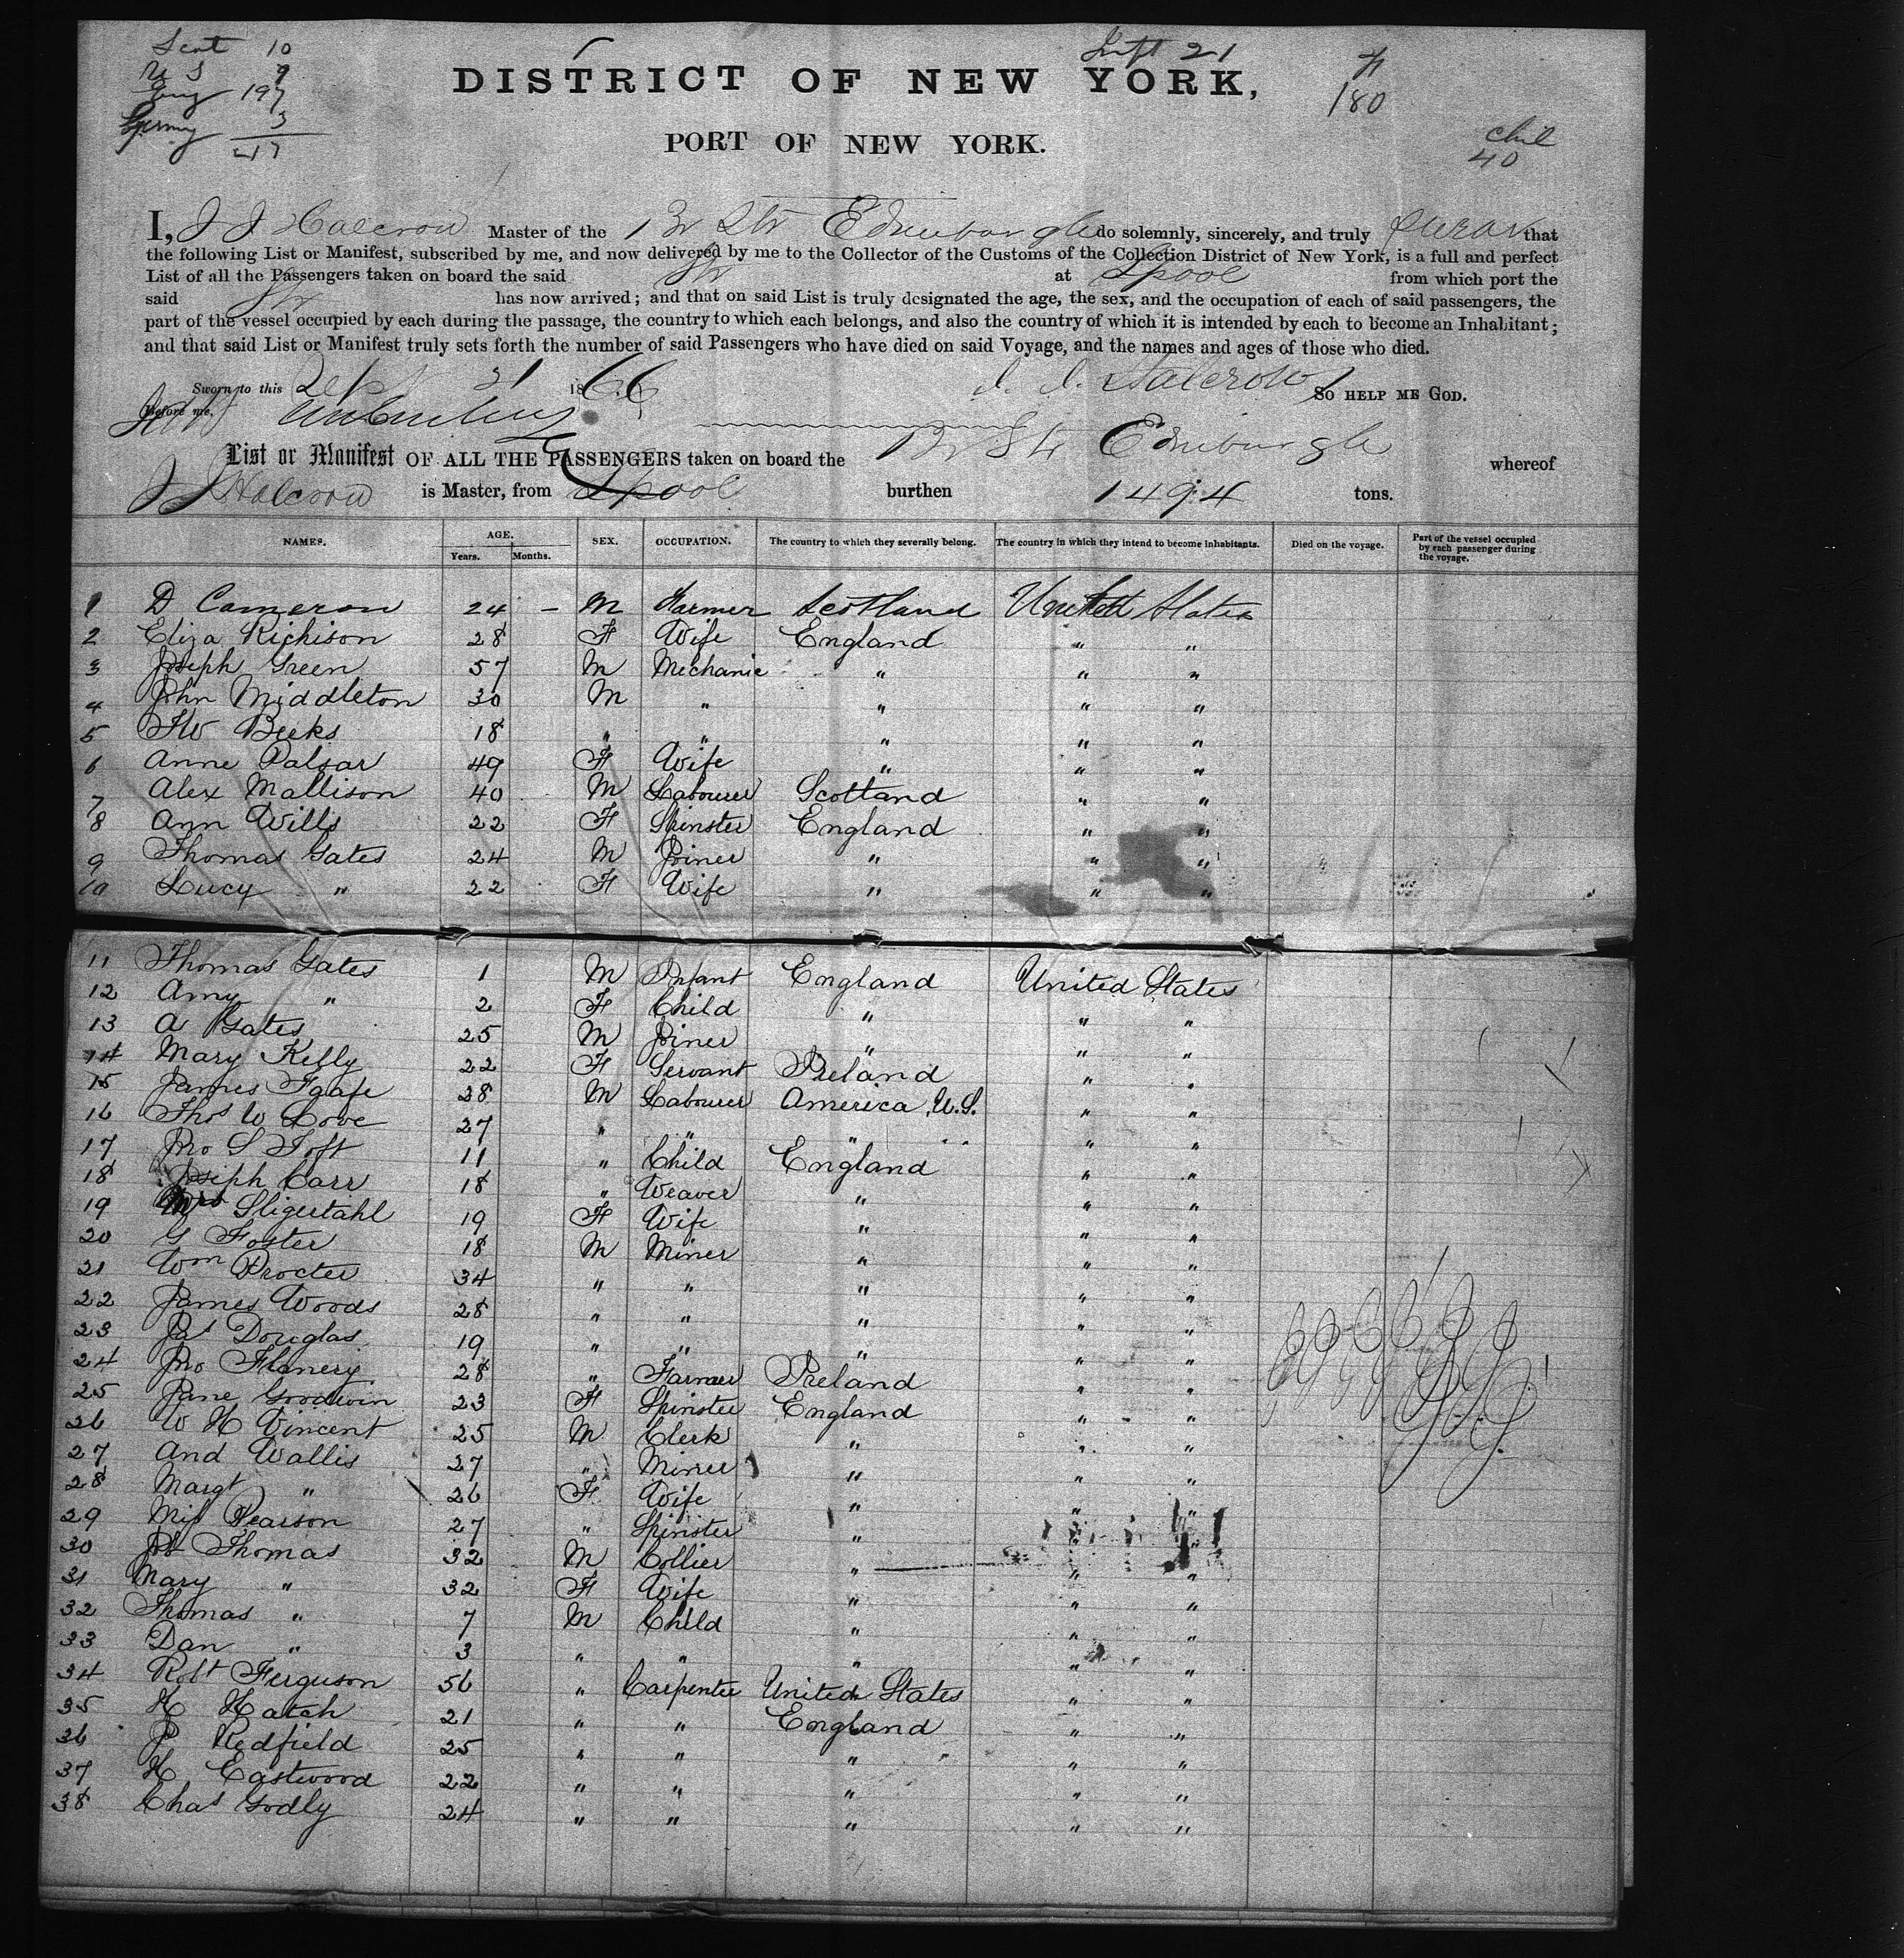 Scot 10
U S 9
Eng 197
Germy 3
Sept 21
180
DISTRICT OF NEW YORK,
PORT OF NEW YORK.
chil
40
I, J J Halcrow Master of the Br Str Edinburgh do solemnly, sincerely, and truly swear that
the following List or Manifest, subscribed by me, and now delivered by me to the Collector of the Customs of the Collection District of New York, is a full and perfect
List of all the Passengers taken on board the said Str at Lpool from which port the
said Str has now arrived; and that on said List is truly designated the age, the sex, and the occupation of each of said passengers, the
part of the vessel occupied by each during the passage, the country to which each belongs, and also the country of which it is intended by each to become an Inhabitant;
and that said List or Manifest truly sets forth the number of said Passengers who have died on said Voyage, and the names and ages of those who died.
Sworn to this Sept 21 1866 J. J. Halcrow SO HELP ME GOD.
Before me,
List or Manifest OF ALL THE PASSENGERS taken on board the Br Str Edinburgh whereof
J J Halcrow is Master, from Lpool burthen 1494 tons.
NAMES. AGE. Years. Months. SEX. OCCUPATION. The country to which they severally belong. The country in which they intend to become inhabitants. Died on the voyage. Part of the vessel occupied by each passenger during the voyage.
1 D Cameron 24 – M Farmer Scotland United States
2 Eliza Richison 28 F Wife England " "
3 Joseph Green 57 M Mechanic " " "
4 John Middleton 30 M " " " "
5 FW Beeks 18 " " " " "
6 Anne Palsar 49 F Wife " " "
7 Alex Mallison 40 M Labourer Scotland " "
8 Ann Wills 22 F Spinster England " "
9 Thomas Gates 24 M Joiner " " "
10 Lucy " 22 F Wife " " "
11 Thomas Gates 1 M Infant England United States
12 Amy " 2 F Child " " "
13 A Gates 25 M Joiner " " "
14 Mary Kelly 22 F Servant Ireland " "
15 James Faafe 28 M Labourer America U.S. " "
16 Thos W Love 27 " " " " " "
17 Jno S Toft 11 " Child England " "
18 Joseph Carr 18 " Weaver " " "
19 Mrs Sligertahl 19 F Wife " " "
20 G Foster 18 M Miner " " "
21 Wm Procter 34 " " " " "
22 James Woods 28 " " " " "
23 Jas Douglas 19 " " " " "
24 Jno Flanery 28 " Farmer Ireland " "
25 Jane Goodwin 23 F Spinster England " "
26 W H Vincent 25 M Clerk " " "
27 And Wallis 27 " Miner " " "
28 Margt " 26 F Wife " " "
29 Miss Pearson 27 " Spinster " " "
30 Jos Thomas 32 M Collier " " "
31 Mary " 32 F Wife " " "
32 Thomas " 7 M Child " " "
33 Dan " 3 " " " " "
34 Robt Ferguson 56 " Carpenter United States " "
35 H Hatch 21 " " England " "
36 P Redfield 25 " " " " "
37 H Eastwood 22 " " " " "
38 Chas Godly 24 " " " " "